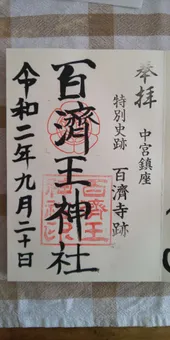 奉拝
中宮鎮座
特別史跡 百濟寺跡
百濟王神社
令和二年九月二十日